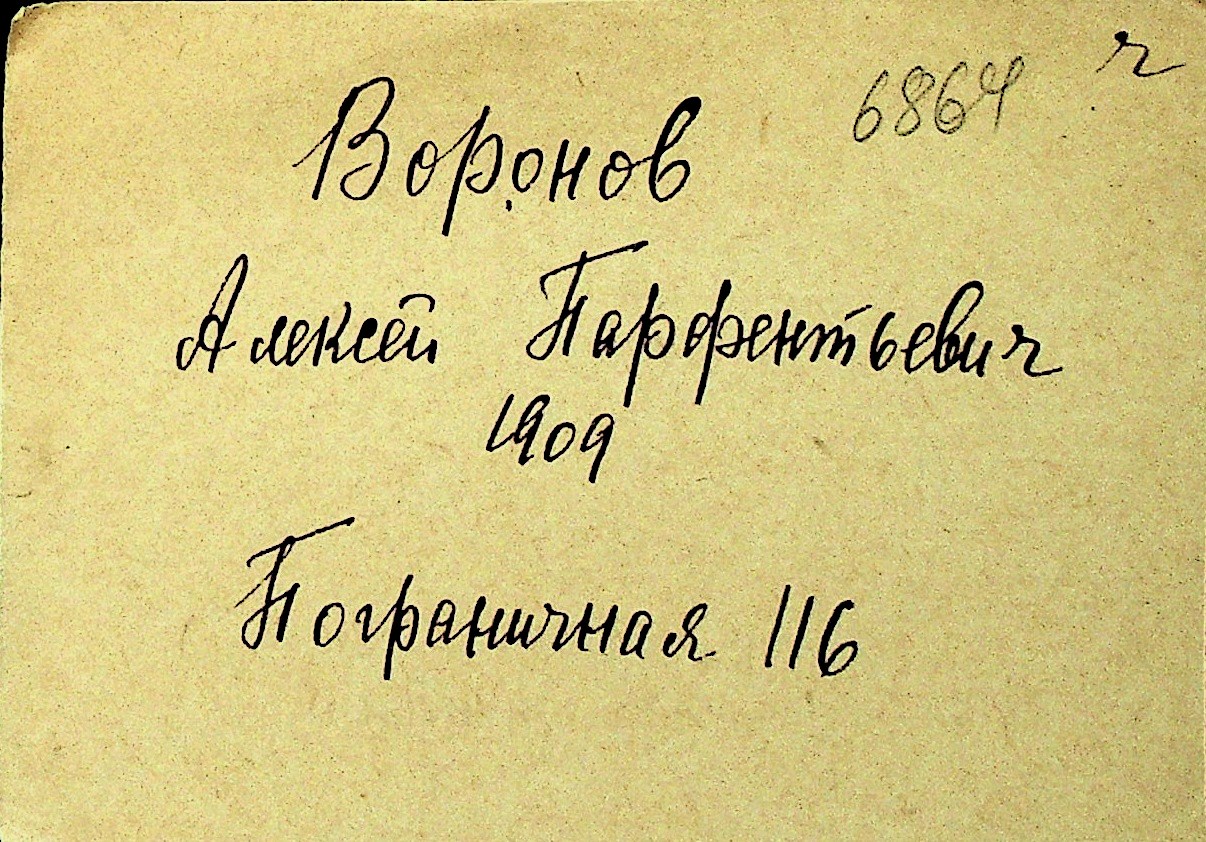 6864 ч
Воронов
Алексей Парфентьевич
1909
Пограничная 116